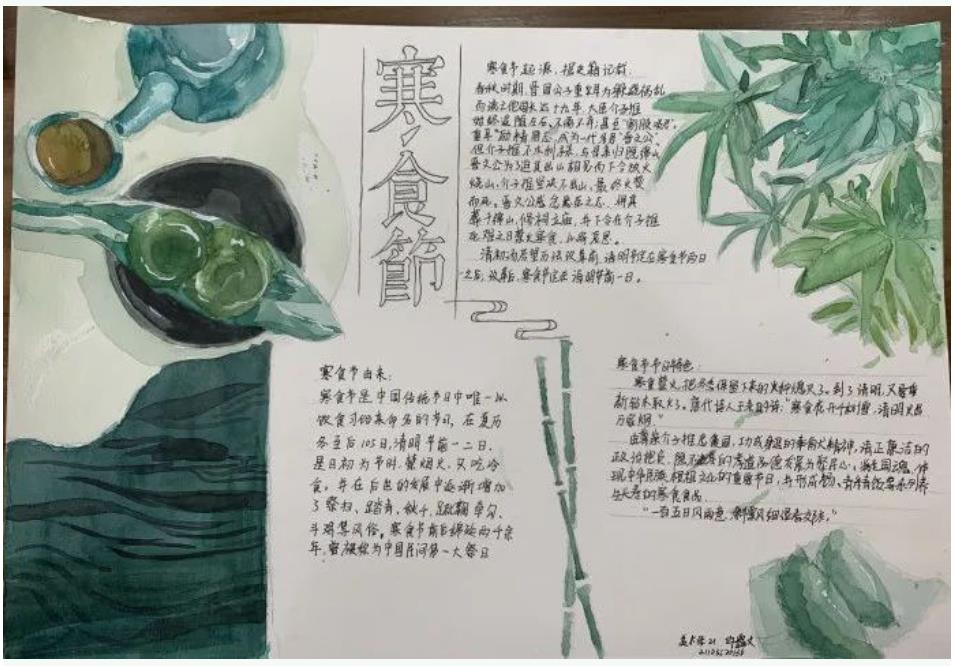 寒食節
寒食节起源,据史籍记载,
春秋时期,晋国公子重耳为躲避祸乱
而流亡他国长达十九年,大臣介子推
始终追随左右、不离不弃;甚至“割股啖君”。
重耳“励精图志,成为一代名君“晋文公”。
但介子推不求利禄,与母亲归隐绵山
晋文公为了迫其出山相见而下令放火
烧山,介子推坚决不出山,最终火焚
而死。晋文公感念忠臣之志,将其
葬于绵山,修祠立庙,并下令在介子推
死难之日禁火寒食,以寄哀思。
清初汤若望历法改革前,清明节定在寒食节两日
之后,改革后,寒食节定在清明节前一日。
寒食节由来:
寒食节是中国传统节日中唯一以
饮食习俗来命名的节日,在夏历
冬至后105日,清明节前一二日。
是日初为节时,禁烟火,只吃冷
食。并在后世的发展中逐渐增加
了祭扫、踏青、秋千、蹴鞠、
斗鸡等风俗。寒食节前后绵延两千余
年,曾被称为中国民间第一大祭日
寒食节节日特色:
寒食禁火,把冬季保留下来的火种熄灭了。到了清明,又要重
新钻木取火了。唐代诗人 的诗:“寒食花开千树雪,清明火出
万家烟。”
介子推忠君爱国,功成身退的奉献精神,清正廉洁的
政治抱负,
与长寿的寒食食品
“一百五日风雨急,斜飘细湿春郊衣。”